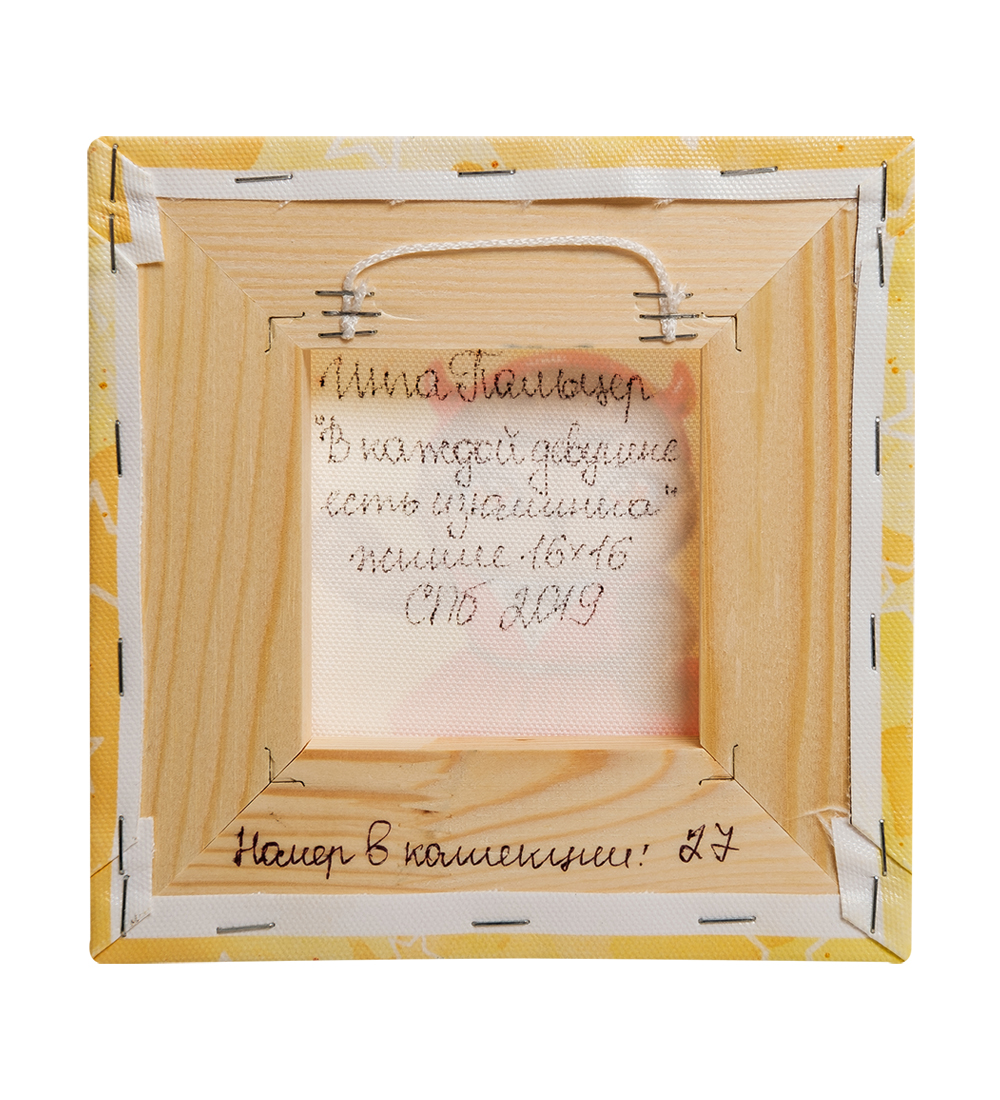 Инга Пальцер
"В каждой девушке
есть изюминка"
жикле 16×16
СПб 2019
Номер в коллекции: 27